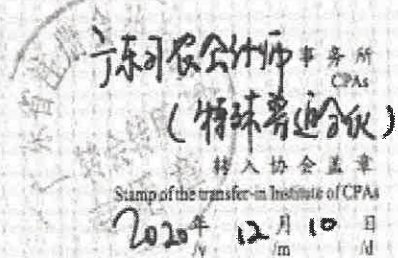 广东司农会计师事务所
CPAs
(特殊普通合伙)
转入协会盖章
Stamp of the transfer-in Institute of CPAs
2020年 12月 10日
/y /m /d